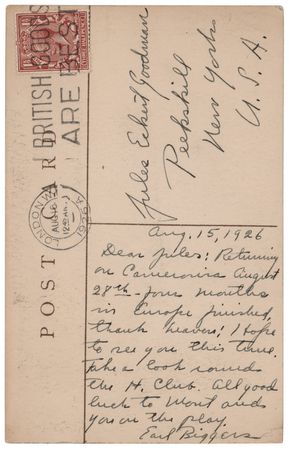 BRITISH GOODS
ARE BEST
LONDON.W.1
AUG 16
1926
POST CARD
Jules Eckert Goodman
Peekskill
New York
U.S.A.
Aug. 15, 1926
Dear Jules: Returning
on Cameronia August
28th - four months
in Europe finished,
thank heavens! I hope
to see you this time.
Take a look round
the H. Club. All good
luck to and
you on the play.
Earl Biggers